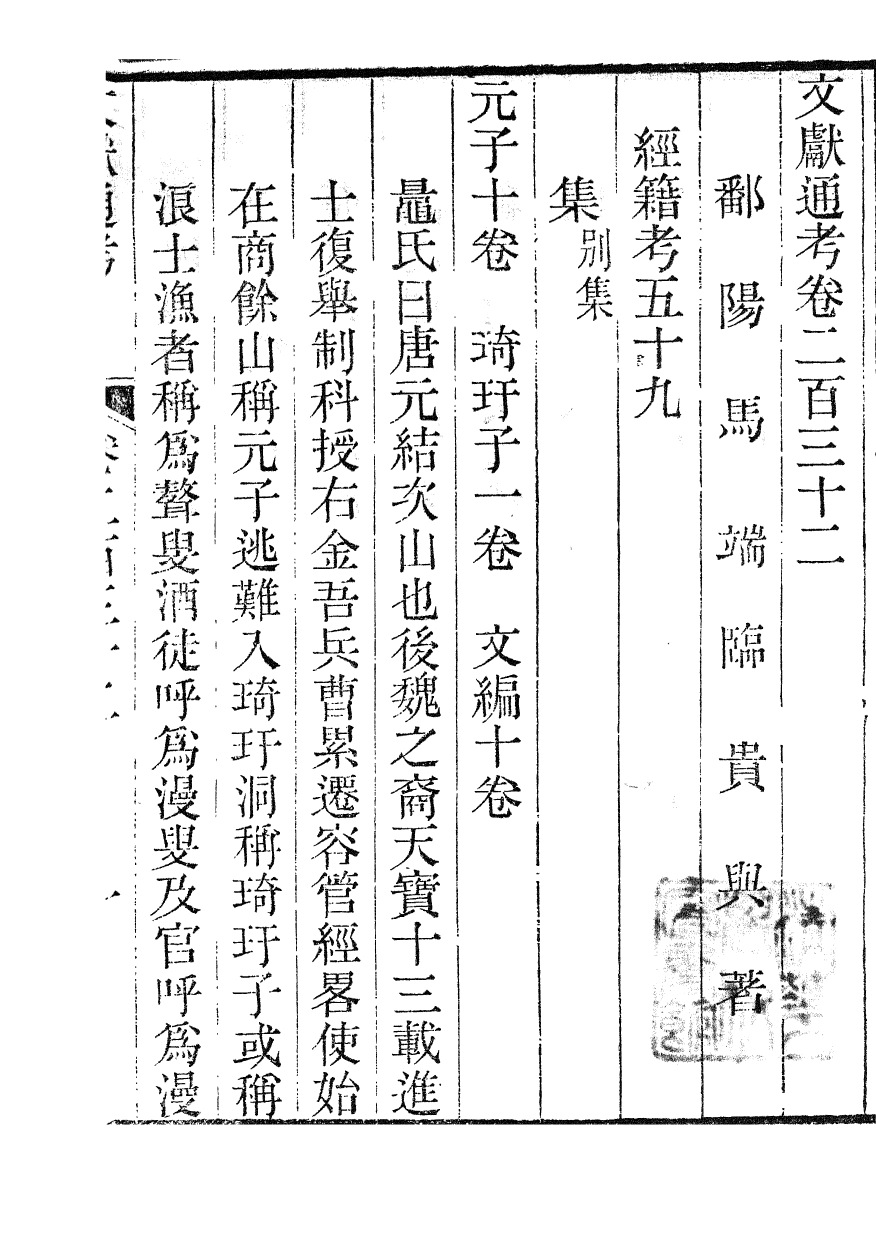 文獻通考卷二百三十二
鄱陽馬端臨貴與著
經籍考五十九
集別集
元子十卷　琦玗子一卷　文編十卷
鼂氏曰唐元結次山也後魏之裔天寶十三載進
士復舉制科授右金吾兵曹累遷容管經畧使始
在商餘山稱元子逃難入琦玗洞稱琦玗子或稱
浪士漁者稱爲聱叟酒徒呼爲漫叟及官呼爲漫